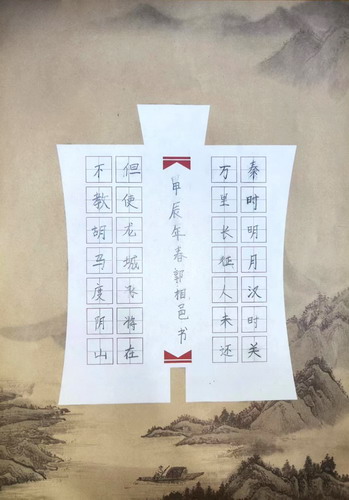 秦时明月汉时关
万里长征人未还
但使龙城飞将在
不教胡马度阴山
甲辰年春郭相邑书